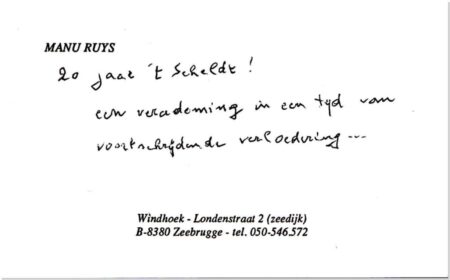 MANU RUYS
20 jaar 't Scheldt !
een verademing in een tijd van
voortschrijdende verloedering ...
Windhoek - Londenstraat 2 (zeedijk)
B-8380 Zeebrugge - tel. 050-546.572